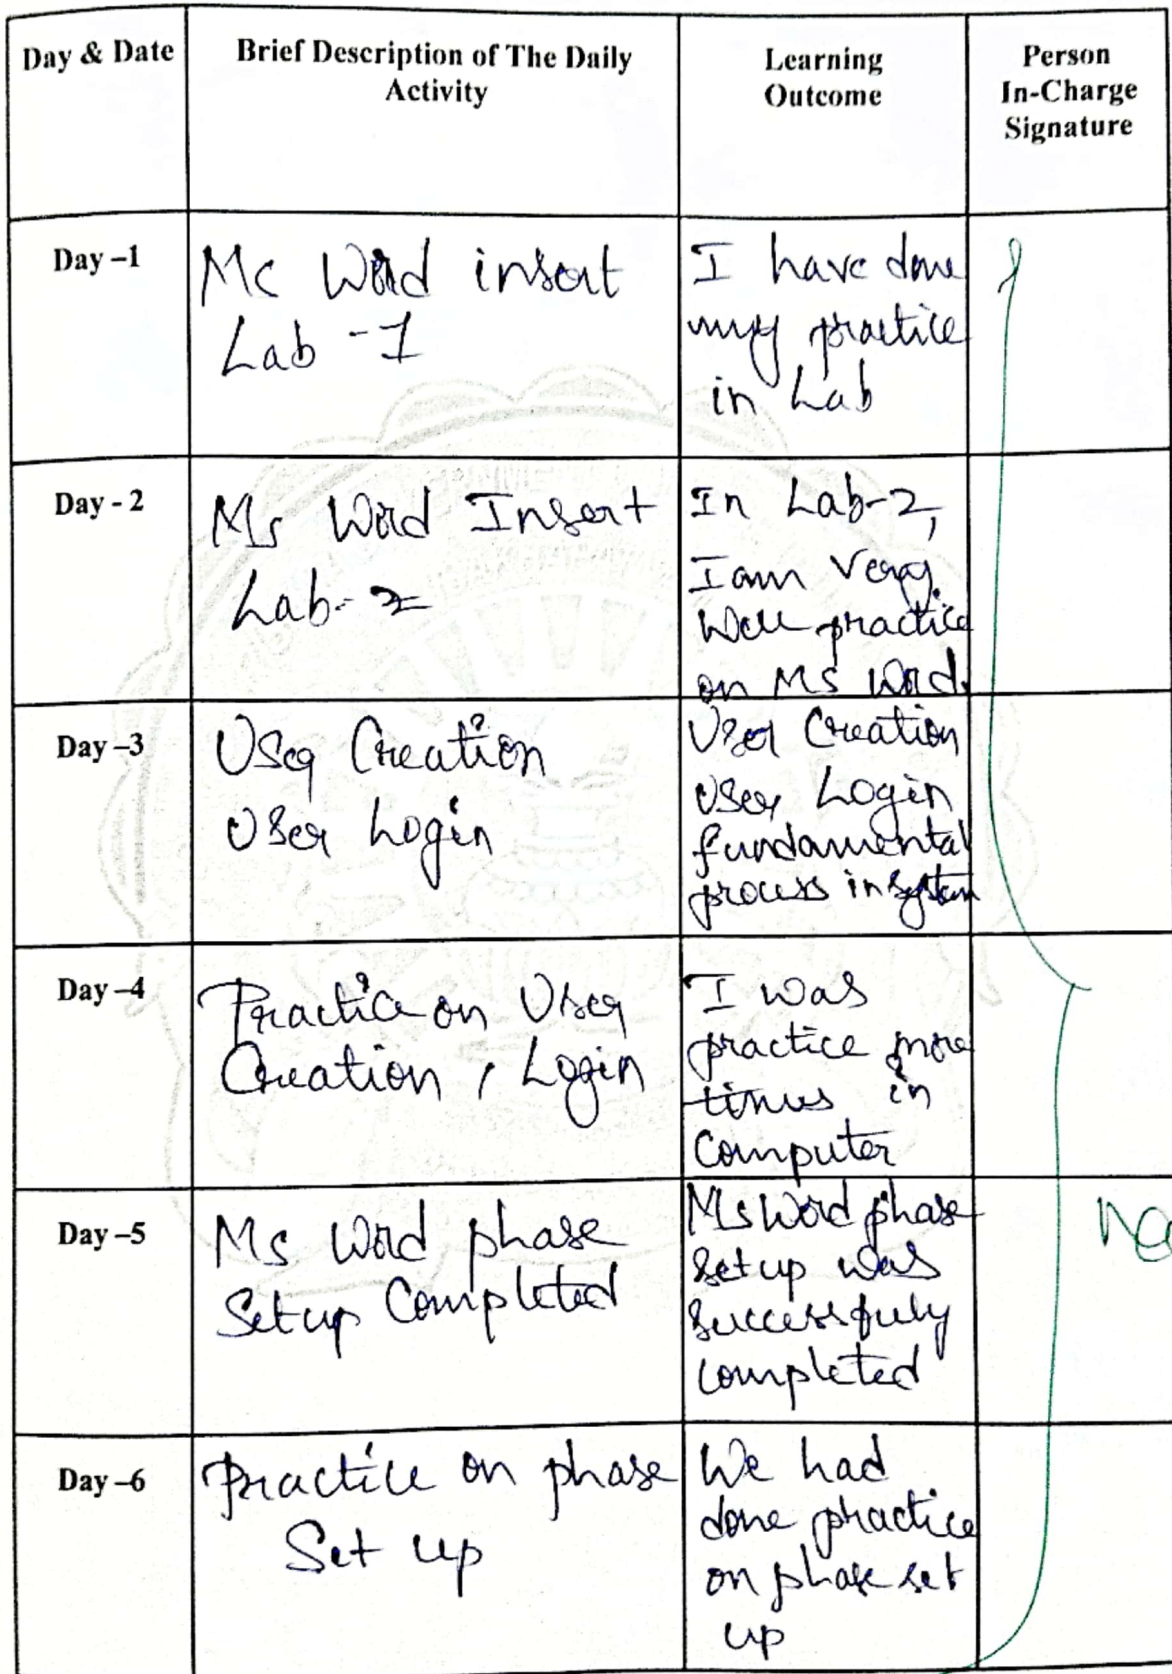 Day & Date
Brief Description of The Daily
Activity
Learning
Outcome
Person
In-Charge
Signature
Day –1
Mc Word insert
Lab -1
I have done
my practice
in Lab
Day - 2
Ms Word Insert
Lab-2
In Lab-2,
I am Very
Well practice
on Ms Word.
Day –3
User Creation
User Login
User Creation
User Login
fundamental
process in system
Day –4
Practice on User
Creation, Login
I was
practice more
times in
Computer
Day –5
Ms Word phase
Setup Completed
Ms Word phase
setup was
successfuly
completed
Day –6
Practice on phase
Set up
We had
done practice
on phase set
up